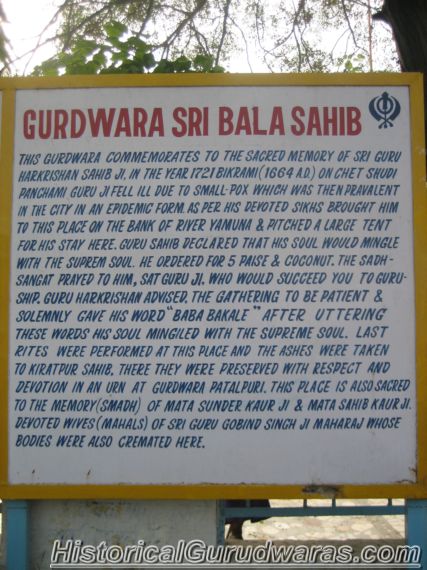 GURDWARA SRI BALA SAHIB
THIS GURDWARA COMMEMORATES TO THE SACRED MEMORY OF SRI GURU
HARKRISHAN SAHIB JI, IN THE YEAR 1721 BIKRAMI (1664 A.D.) ON CHET SHUDI
PANCHAMI GURU JI FELL ILL DUE TO SMALL-POX WHICH WAS THEN PRAVALENT
IN THE CITY IN AN EPIDEMIC FORM. AS PER HIS DEVOTED SIKHS BROUGHT HIM
TO THIS PLACE ON THE BANK OF RIVER YAMUNA & PITCHED A LARGE TENT
FOR HIS STAY HERE. GURU SAHIB DECLARED THAT HIS SOUL WOULD MINGLE
WITH THE SUPREM SOUL. HE ORDERED FOR 5 PAISE & COCONUT. THE SADH-
SANGAT PRAYED TO HIM, SAT GURU JI. WHO WOULD SUCCEED YOU TO GURU-
SHIP. GURU HARKRISHAN ADVISED THE GATHERING TO BE PATIENT &
SOLEMNLY GAVE HIS WORD "BABA BAKALE" AFTER UTTERING
THESE WORDS HIS SOUL MINGILED WITH THE SUPREME SOUL. LAST
RITES WERE PERFORMED AT THIS PLACE AND THE ASHES WERE TAKEN
TO KIRATPUR SAHIB, THERE THEY WERE PRESERVED WITH RESPECT AND
DEVOTION IN AN URN AT GURDWARA PATALPURI. THIS PLACE IS ALSO SACRED
TO THE MEMORY (SMADH) OF MATA SUNDER KAUR JI & MATA SAHIB KAUR JI.
DEVOTED WIVES (MAHALS) OF SRI GURU GOBIND SINGH JI MAHARAJ WHOSE
BODIES WERE ALSO CREMATED HERE.
HistoricalGurudwaras.com